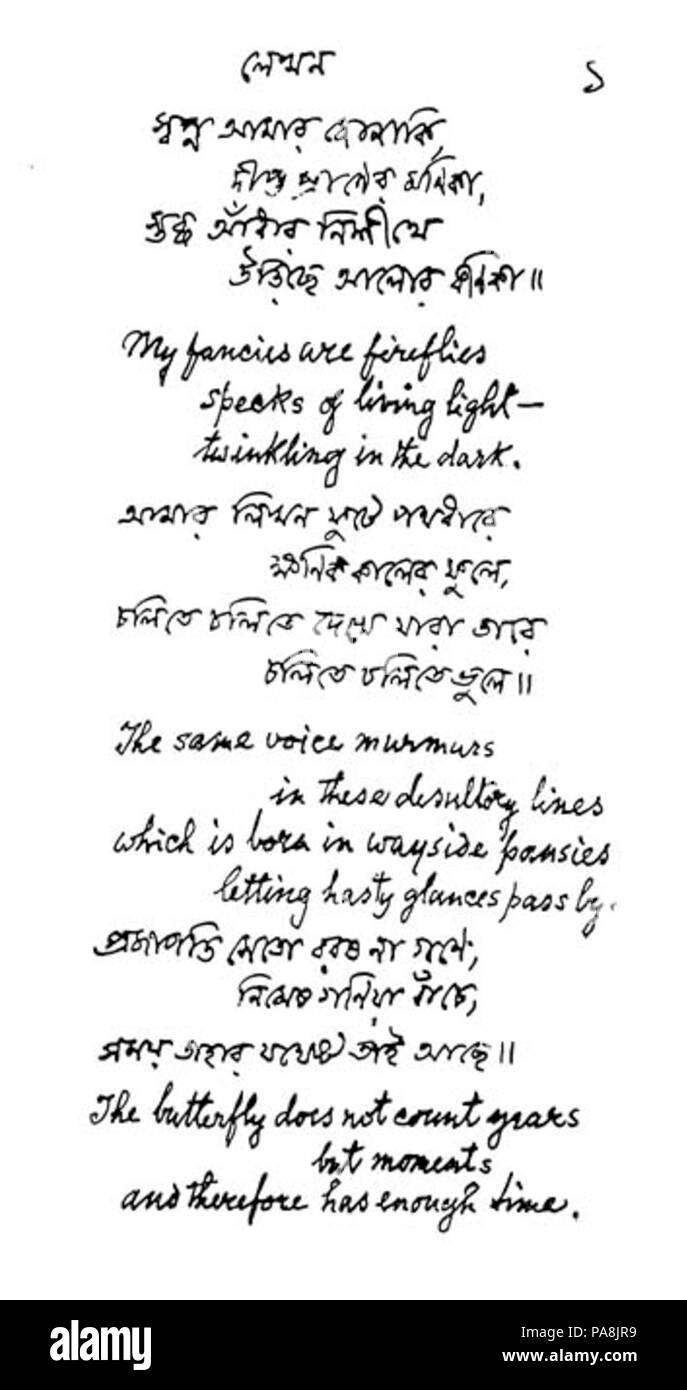 লেখন ১
স্বপ্ন আমার জোনাকি,
দীপ্ত প্রাণের মণিকা,
স্তব্ধ আঁধার নিশীথে
উড়িছে আলোর কণিকা॥
My fancies are fireflies
specks of living light—
twinkling in the dark.
আমার লিখন ফুটে পথধারে
ক্ষণিক কালের ফুলে,
চলিতে চলিতে দেখে যারা তারে
চলিতে চলিতে ভুলে॥
The same voice murmurs
in these desultory lines
which is born in wayside pansies
letting hasty glances pass by.
প্রজাপতি সেতো বরষ না গণে,
নিমেষ গণিয়া বাঁচে,
সময় তাহার যথেষ্ট তাই আছে॥
The butterfly does not count years
but moments
and therefore has enough time.
alamy
Image ID: PA8JR9
www.alamy.com